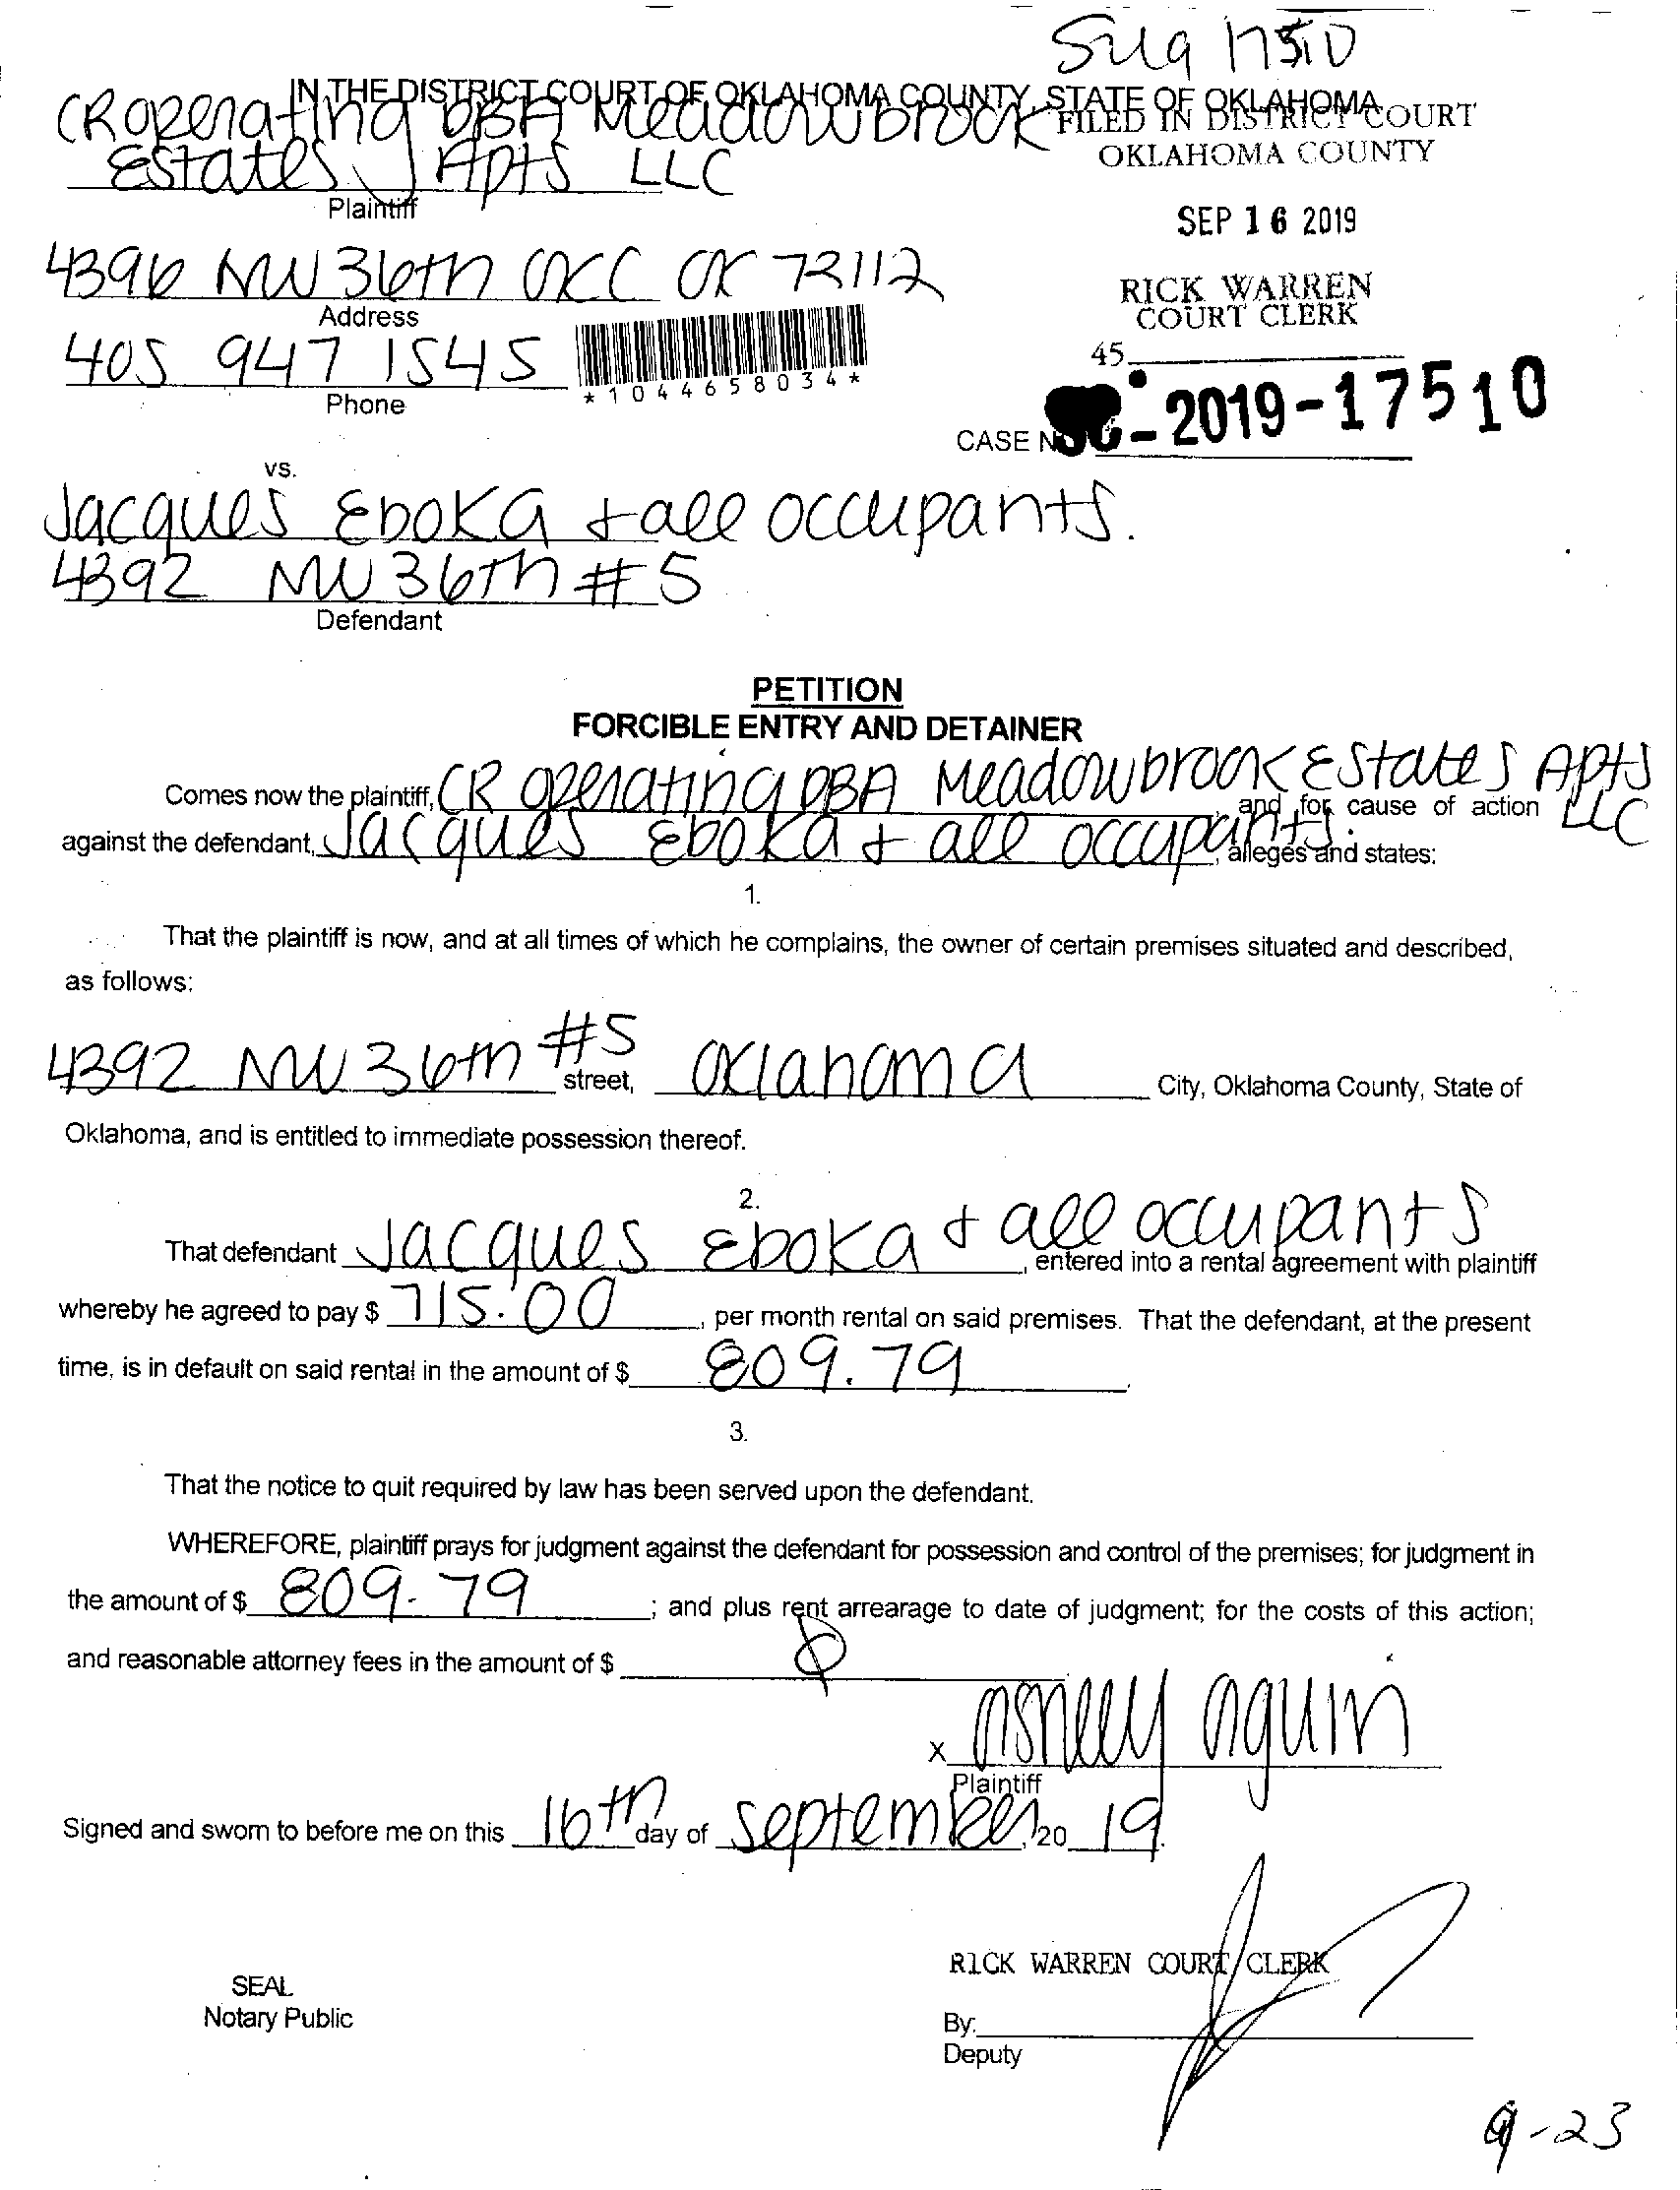 IN THE DISTRICT COURT OF OKLAHOMA COUNTY, STATE OF OKLAHOMA
CR operating DBA Meadowbrook
FILED IN DISTRICT COURT
Estates Apts LLC
OKLAHOMA COUNTY
Plaintiff
SEP 16 2019
4396 NW 36th OKC OK 73112
RICK WARREN
Address
COURT CLERK
405 947 1545
*1044658034*
45
Phone
CASE NO SC-2019-17510
vs.
Jacques Eboka + all occupants.
4392 NW 36th #5
Defendant
PETITION
FORCIBLE ENTRY AND DETAINER
Comes now the plaintiff, CR operating DBA Meadowbrook Estates Apts LLC and for cause of action
against the defendant, Jacques Eboka + all occupants., alleges and states:
1.
That the plaintiff is now, and at all times of which he complains, the owner of certain premises situated and described,
as follows:
4392 NW 36th #5 street, Oklahoma City, Oklahoma County, State of
Oklahoma, and is entitled to immediate possession thereof.
2.
That defendant Jacques Eboka + all occupants, entered into a rental agreement with plaintiff
whereby he agreed to pay $ 715.00, per month rental on said premises. That the defendant, at the present
time, is in default on said rental in the amount of $ 809.79.
3.
That the notice to quit required by law has been served upon the defendant.
WHEREFORE, plaintiff prays for judgment against the defendant for possession and control of the premises; for judgment in
the amount of $ 809.79; and plus rent arrearage to date of judgment; for the costs of this action;
and reasonable attorney fees in the amount of $
x Ashley
Plaintiff
Signed and sworn to before me on this 16th day of September, 20 19.
RICK WARREN COURT CLERK
SEAL
Notary Public
By:
Deputy
9-23